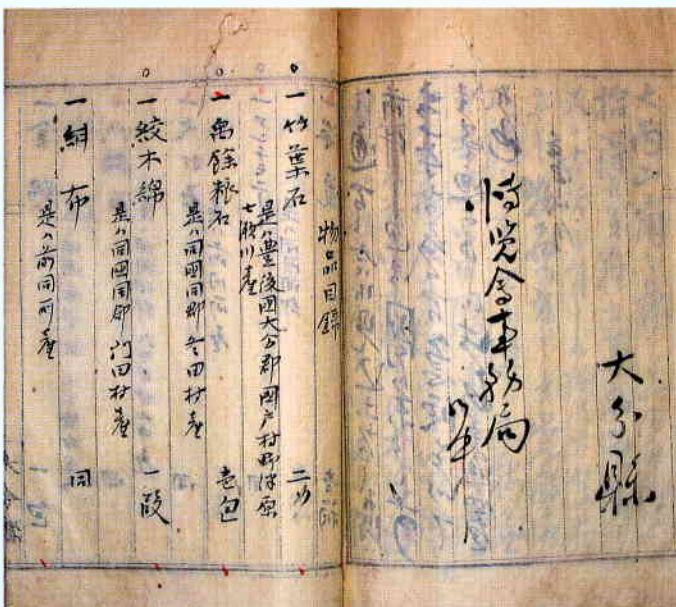 大分縣
博覧会事務局
御中
物品目録
一 竹葉石 二
是ハ豊後國大分郡関戸村野津原
七瀬川産
一 禹餘粮石 壱包
是ハ同國同郡冬田村産
一 絞木綿 一段
是ハ同國同郡門田村産
一 絣布 同
是ハ前同所産